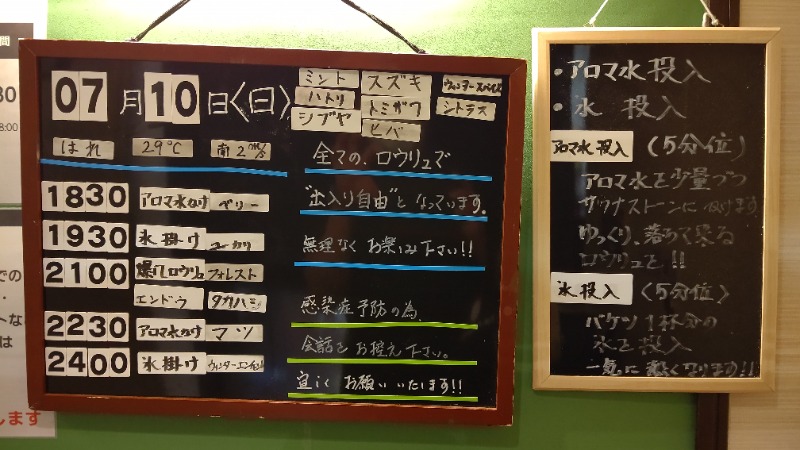 07月10日〈日〉
ミント
ハトリ
シブヤ
スズキ
トミザワ
ヒバ
シトラス
はれ 29℃ 南2m/s
1830 アロマ水かけ ベリー
1930 氷掛け ユーカリ
2100 爆汗ロウリュ フォレスト
エンドウ タカハシ
2230 アロマ水かけ マツ
2400 氷掛け
全ての、ロウリュで
"出入り自由"となっています。
無理なくお楽しみ下さい!!
感染症予防の為、
会話をお控え下さい。
宜しくお願いいたします!!
・アロマ水投入
・氷 投入
アロマ水投入 (5分位)
アロマ水を少量づつ
サウナストーンにかけます
ゆっくり、落ちて来る
ロウリュと!!
氷投入 〈5分位〉
バケツ1杯分の
氷を投入
一気に熱くなります!!